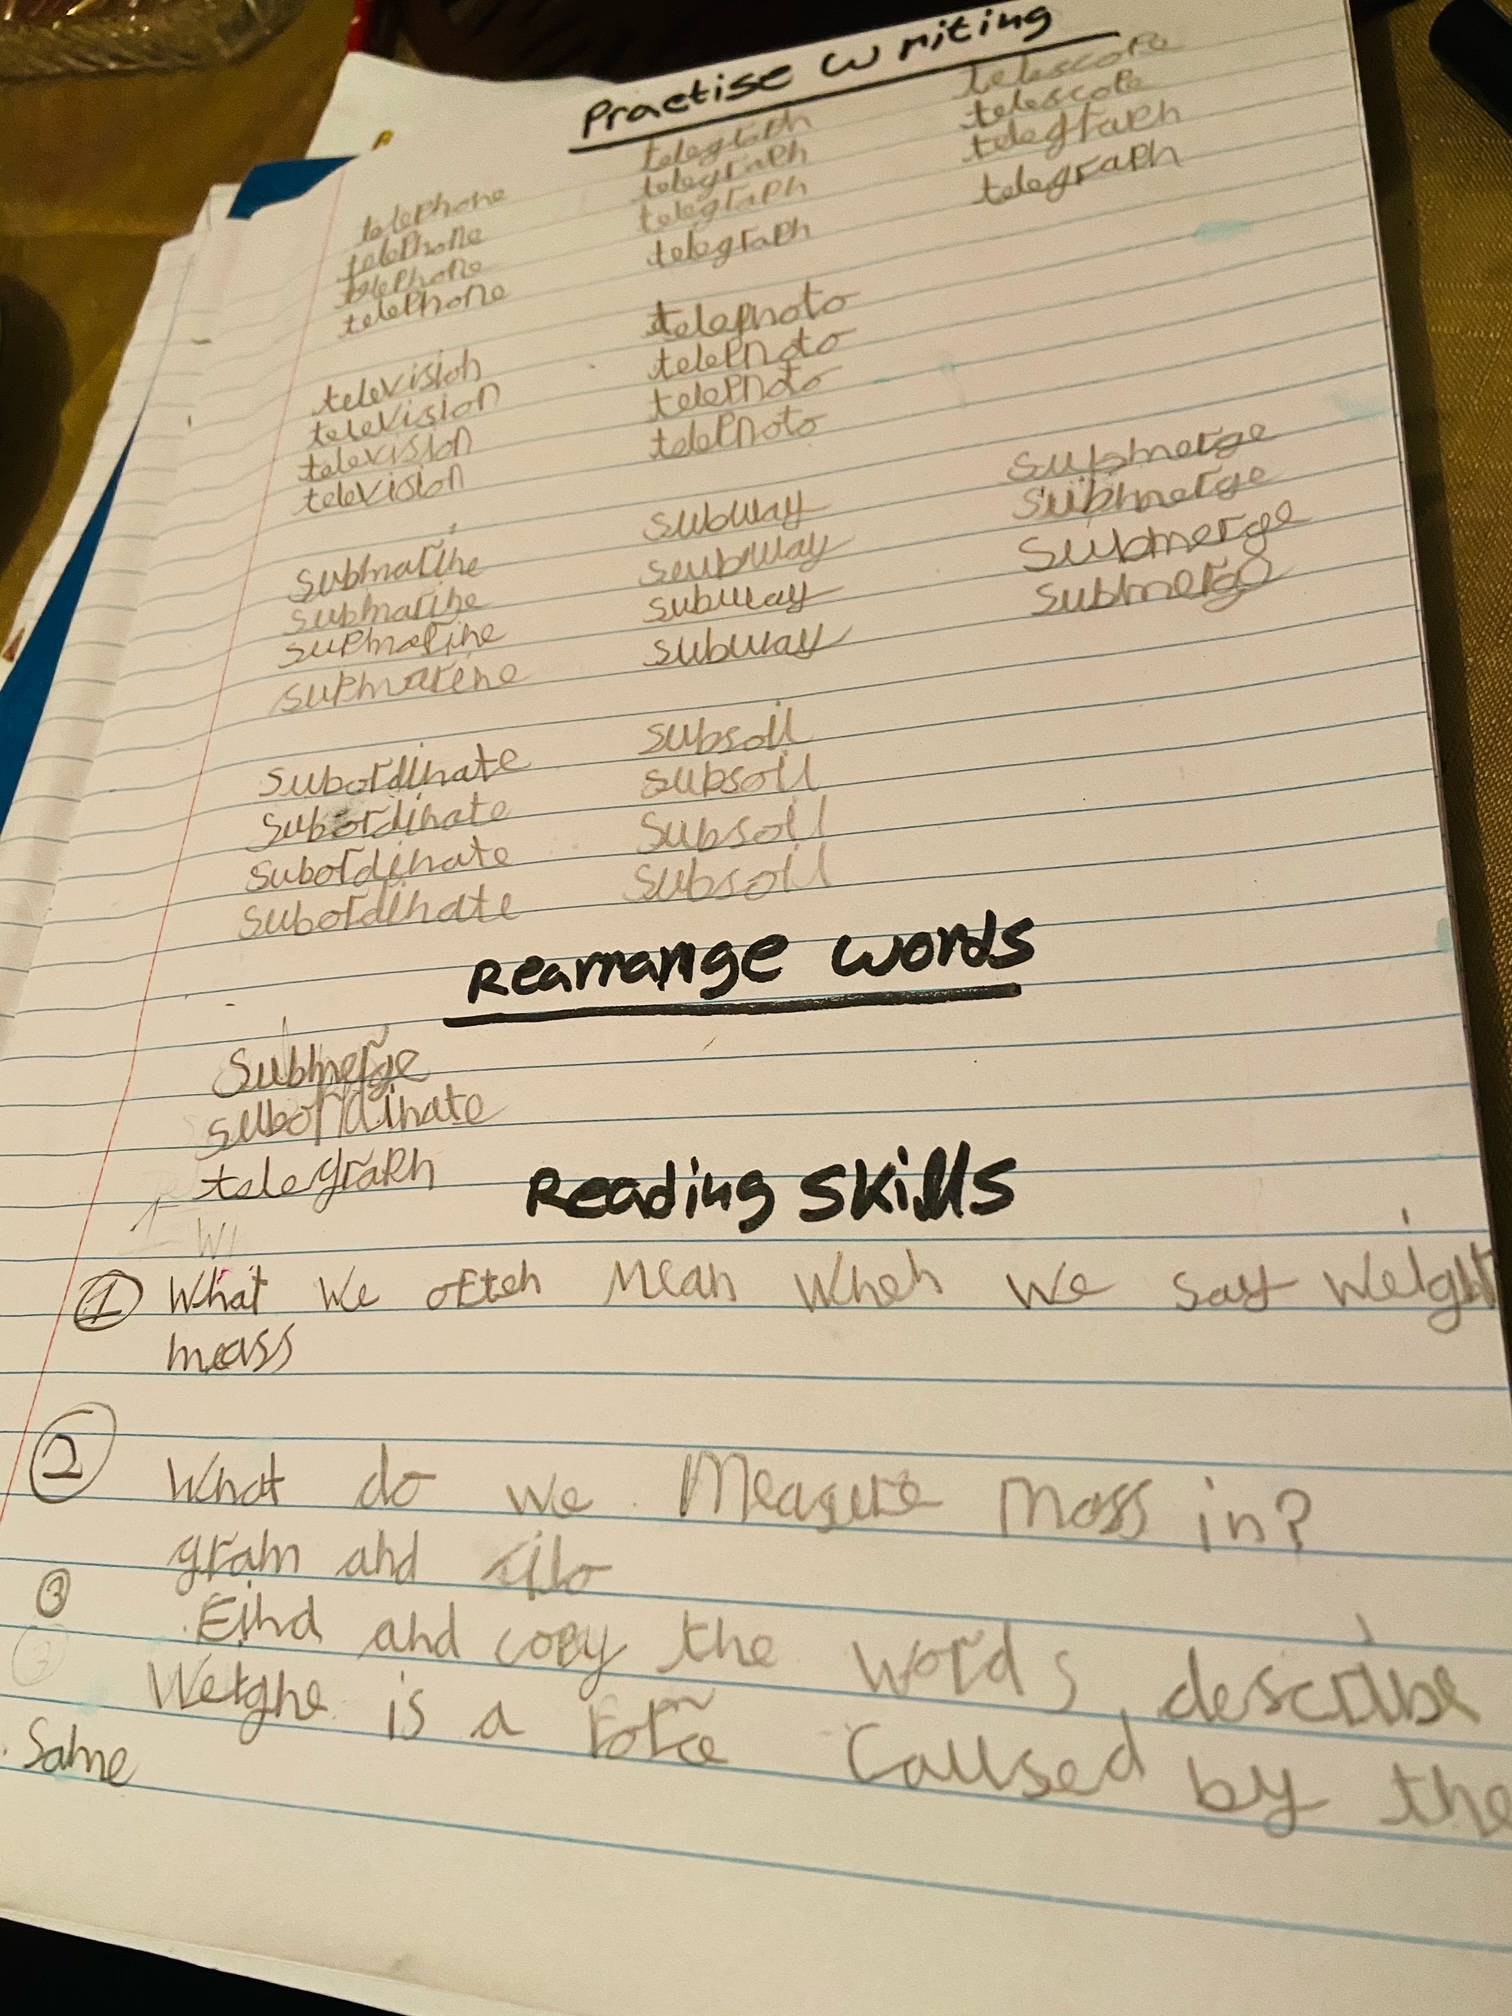 Practise Writing
telephone
telephone
telephone
telephone
telegraph
telegraph
telegraph
telegraph
telescope
telescope
telegraph
telegraph
television
television
television
television
telephoto
telephoto
telephoto
telephoto
submarine
submarine
supmarine
supmarene
subway
seubway
subway
subway
submerge
submerge
submerge
submerge
subordinate
subordinate
subordinate
subordinate
subsoil
subsoil
subsoil
subsoil
Rearrange words
submerge
subordinate
telegraph
Reading skills
1 What we often Mean when we say weight
mass
2 What do we Measure mass in?
gram and kilo
3 Find and copy the words describe
Weighe is a force caused by the
Same